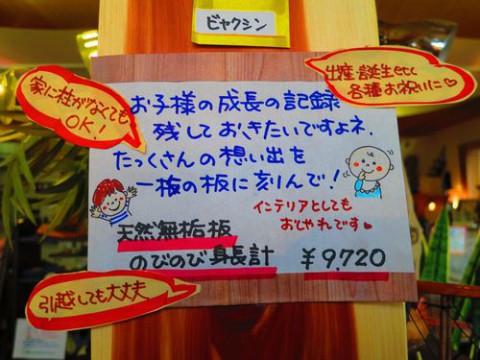 ビャクシン
家に柱がなくても
OK!
出産誕生etc
各種お祝いに♡
お子様の成長の記録
残しておきたいですよネ.
たっくさんの想い出を
一枚の板に刻んで!
インテリアとしても
おしゃれです♥
天然無垢板
のびのび身長計 ¥9,720
引越しても大丈夫